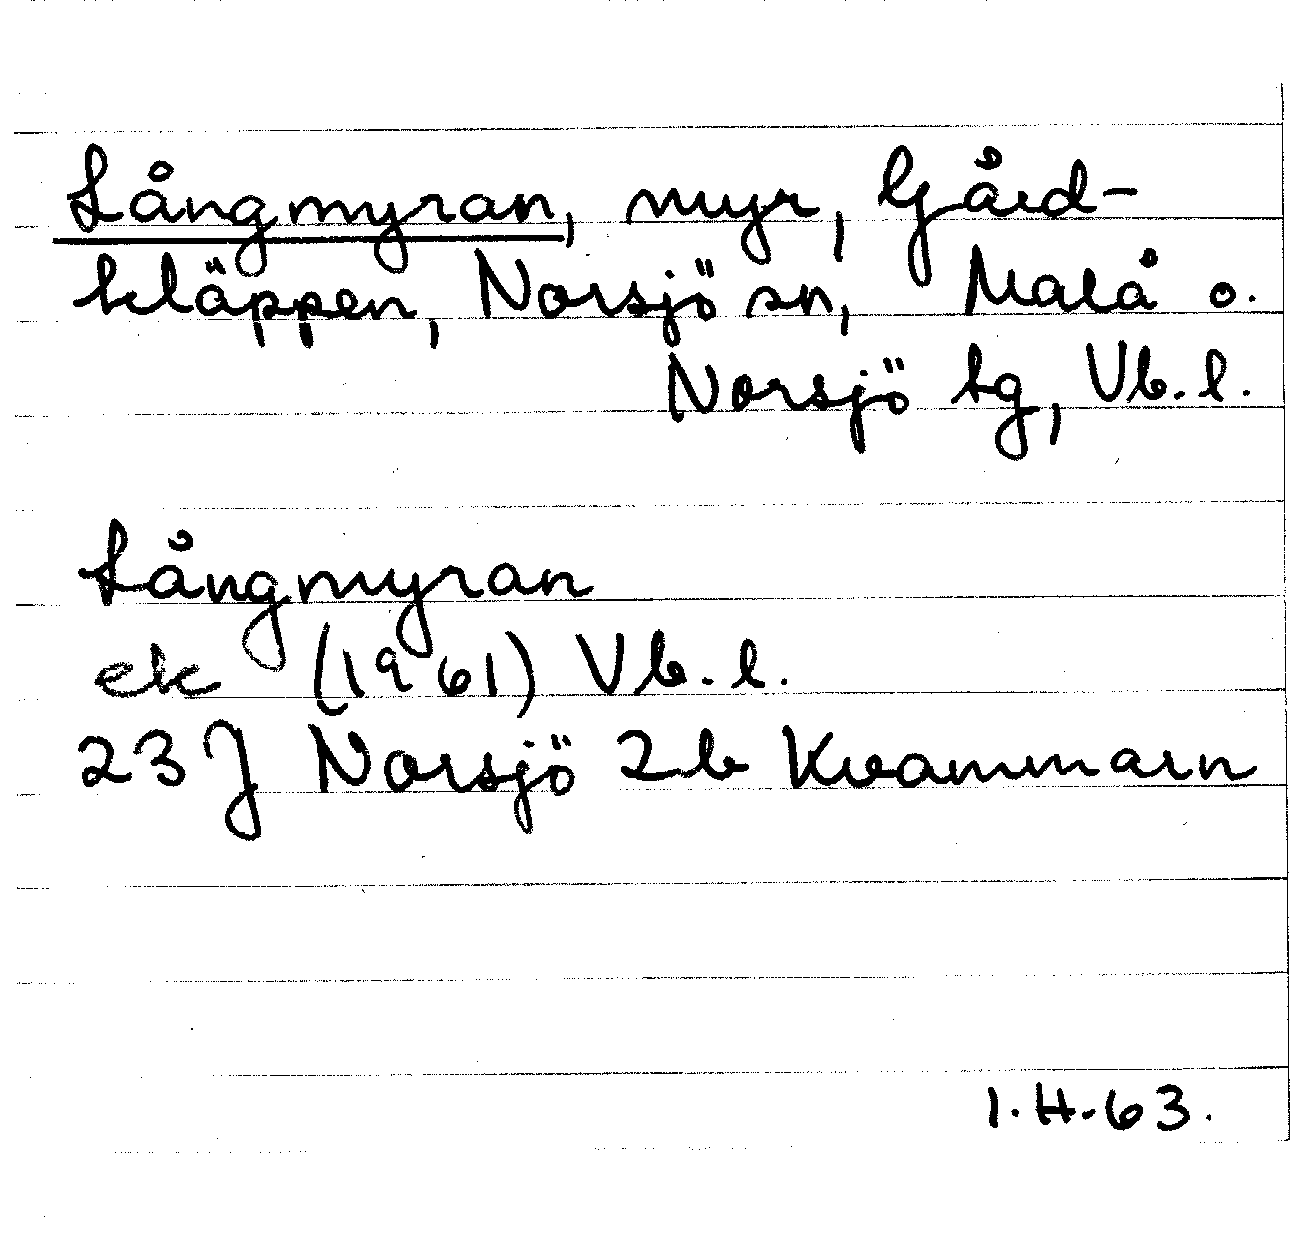 Långmyran, myr, Gård-
kläppen, Norsjö sn, Malå o.
Norsjö tg, Vb. l.
Långmyran
ek (1961) Vb. l.
23 J Norsjö 2b Kvammarn
I. H. 63.